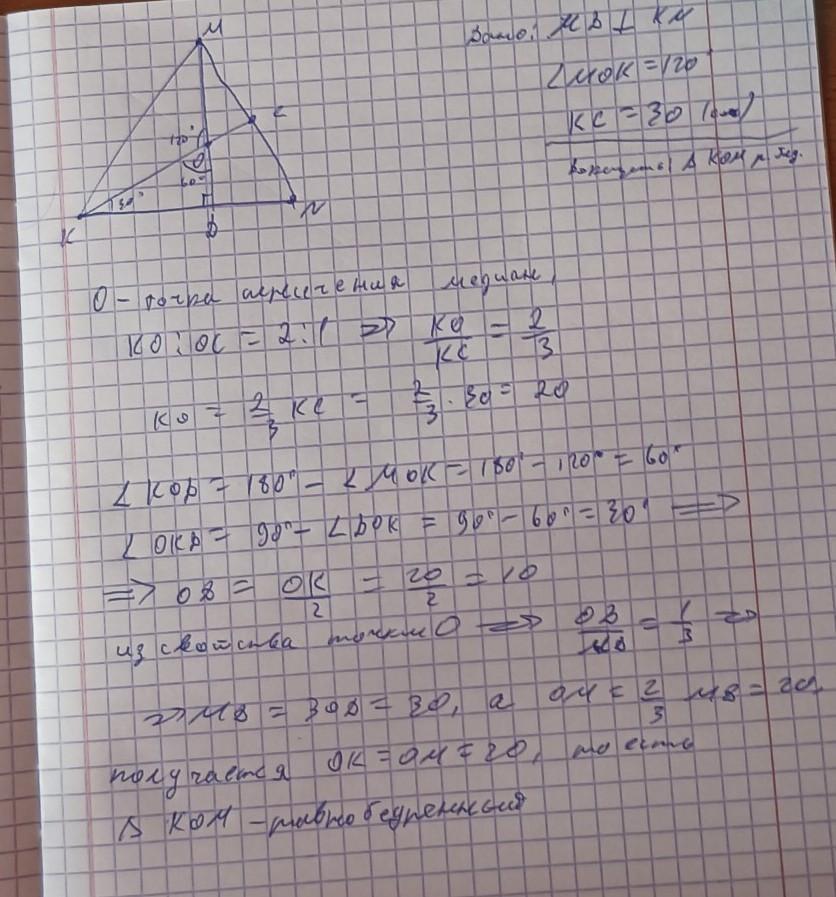 Дано: МВ ⊥ KN
∠МОК = 120°
КС = 30
Δ КОМ
M
C
120°
O
60°
30°
K
B
N
O - точка пересечения медиан,
KO : OC = 2 : 1 => KO/KC = 2/3
KO = 2/3 KC = 2/3 · 30 = 20
∠ KOB = 180° - ∠ MOK = 180° - 120° = 60°
∠ OKB = 90° - ∠ BOK = 90° - 60° = 30° =>
=> OB = OK/2 = 20/2 = 10
из свойства точки O => OB/MB = 1/3 =>
=> MB = 3OB = 30, а OM = 2/3 MB = 20,
получается OK = OM = 20, то есть
Δ KOM - равнобедренный